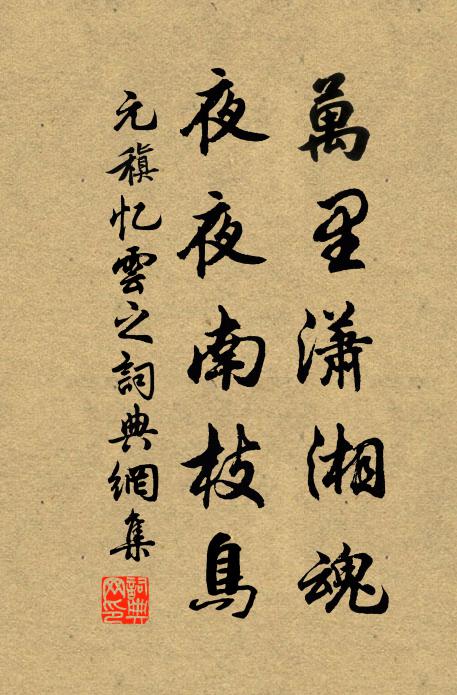 萬里瀟湘魂
夜夜南枝鳥
元稹忆雲之詞典網集
詞典
网印